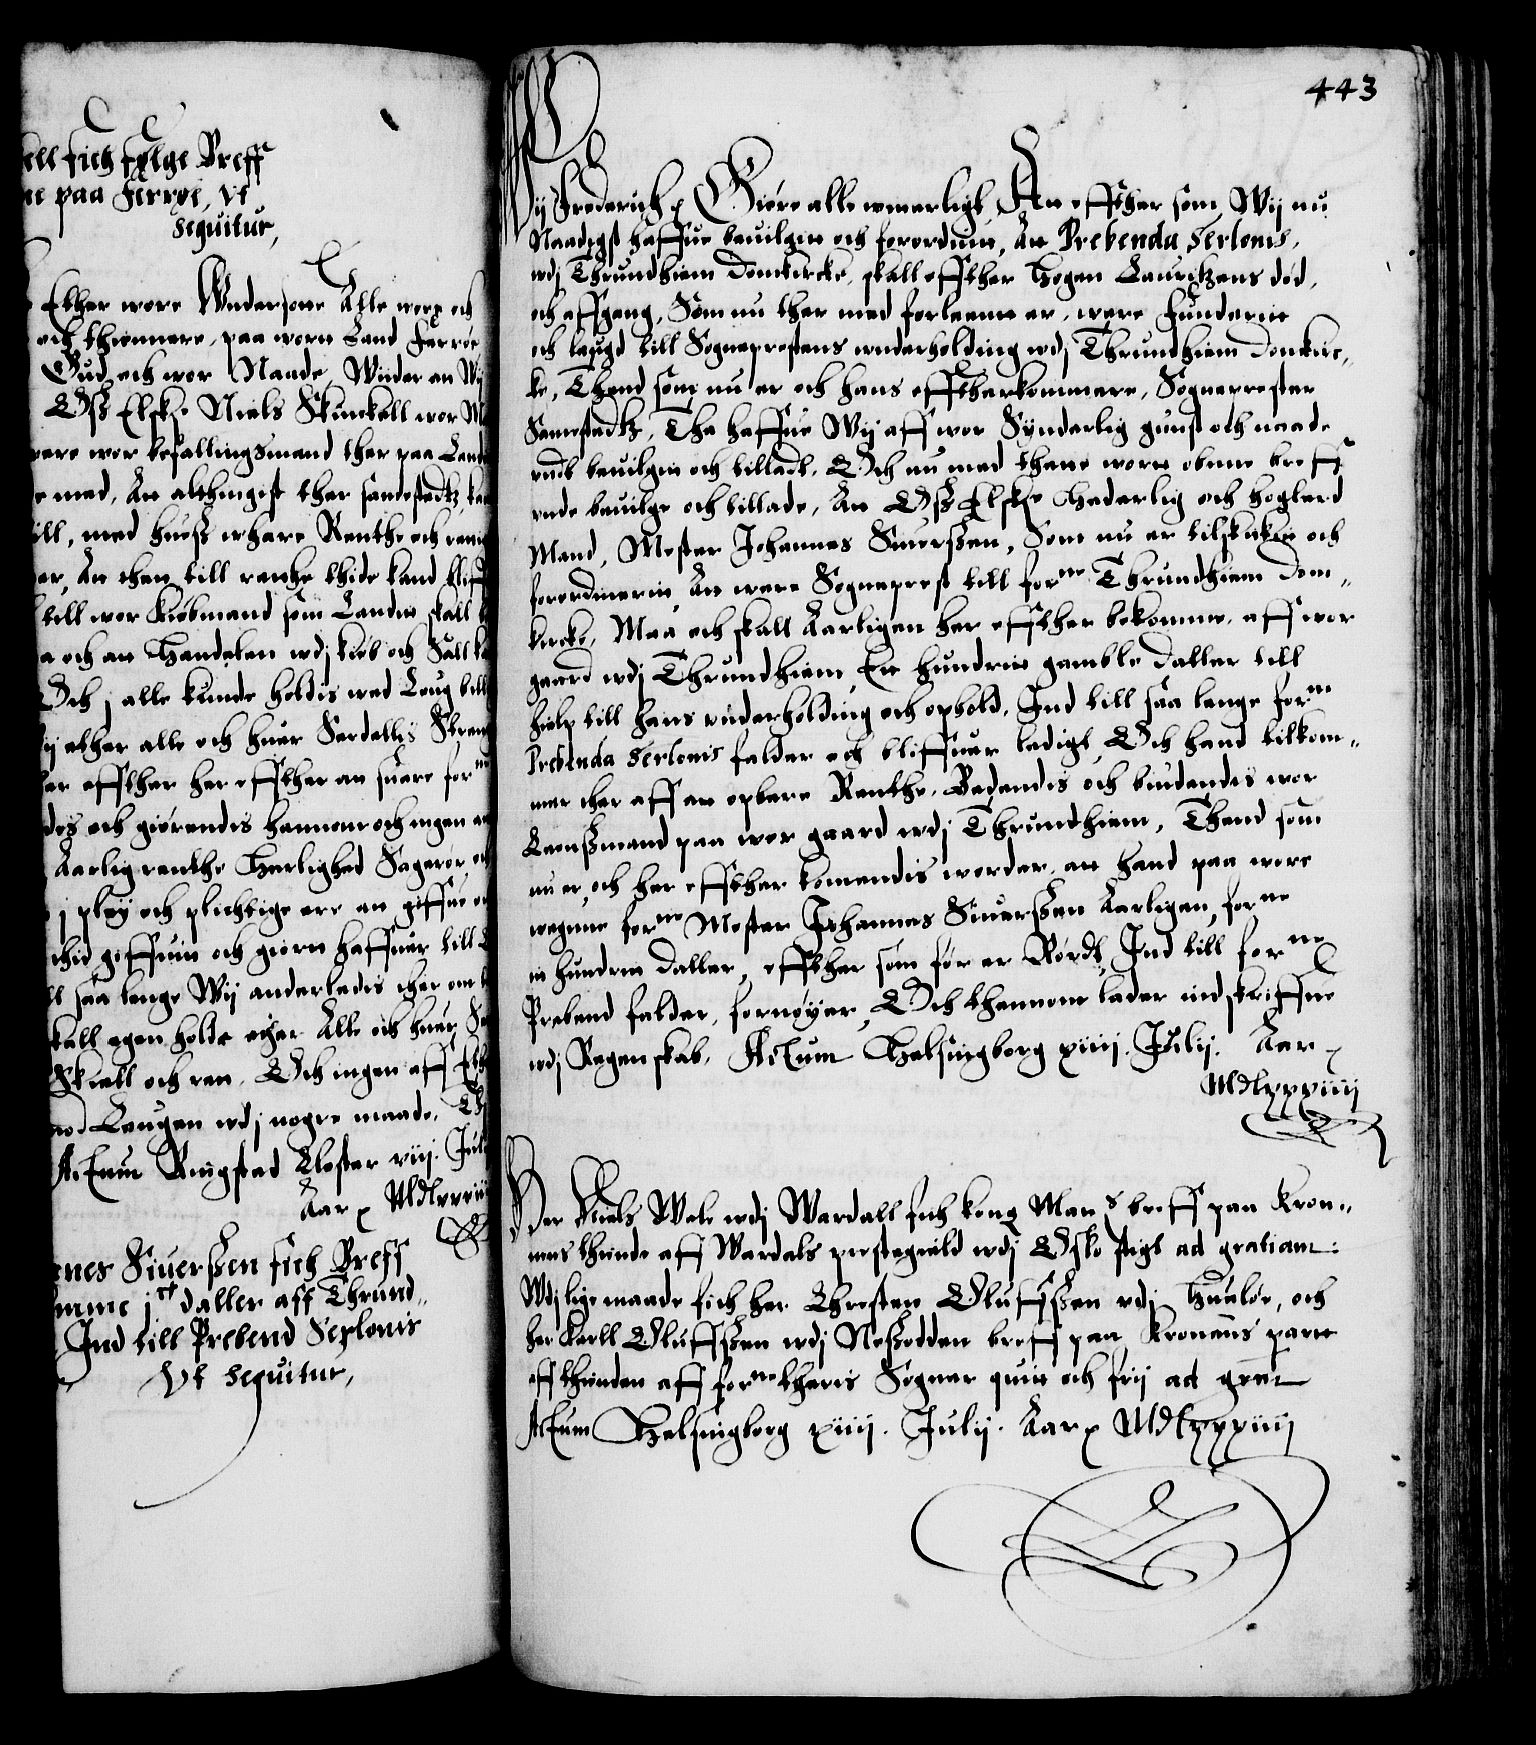 ell fick følge Breff
ne paa Ferrøe, Vt
sequitur,
Ether wore Vndersotte Alle wore och
och thiennere, paa wortt Land Færrøe
Gud och wor Naade, Wider at Wij
Oss Elske Niels Skinckell wor M
were wor befallingsmand ther paa Land
e med, At althingist ther samestedtz
till, med huess whare Renthe och
at then till rette thide kand
till wor kiøbmand som Landitt skall
a och at Handelen wdj kiøb och Sall
Och j alle kunde holdis wed Loug
ether alle och huer Serdelis Streng
her effther her effther at suare forne
des och giørendis hannom och ingen
Aarlig renthe Herlighed Sagerør
j pleij och plichtige ere at giffue
thid giffuitt och giort haffuer till
saa lenge Wij anderledis ther om
skall egen holde ether Alle och huer
Skiell och ret. Och ingen aff Eth
mod Lougen wdj nogre maade.
Actum Ringsted Closter viij. Juli
Aar p Mdlxxxiiij
nes Siuerssen fick Breff
mme jct daller aff Thrund„
Ind till Prebend Sertonis
Vt sequitur,
443
Wij Frederich p Giøre alle witterligt, At effther som Wij nu
Naadigst haffue beuilgitt och forordnitt, At Prebenda Sertonis,
wdj Thrundhiem Domkircke, skall effther Hogen Lauritzens død,
och affgang, Som nu ther med forleenett er, were Funderitt
och laugd till Sogneprestens wnderholding wdj Thrundhiem Domkirc„
ke, Thend som nu er och hans effterkommere, Sogneprester
Samestedtz, Tha haffue Wij aff wor Synderlig gunst och naade
vndt beuilgitt och tilladt, Och nu med thette wortt obne breff
vnde beuilge och tillade, At Oss Elskelig Hederlig och Høglerd
Mand, Mester Johannes Siuerssen, Som nu er tilskickitt och
forordinerit, At were Sogneprest till forne Thrundhiem Dom„
kircke, Maa och skall Aarligen her effther bekomme, aff wor
gaard wdj Thrundhiem Ett Hundritt gamble Daller till
hielp till hans wnderholding och ophold, Ind till saa lenge forne
Prebenda Sertonis falder och bliffuer ledigt, Och hand tilkom„
mer ther aff at opbere Renthe. Bedendis och biudendis wor
Leenssmand paa wor gaard wdj Thrundhiem, Thend som
nu er, och her effther komendis worder, at hand paa wore
wegnne forne Mester Johannes Siuerssen Aarligen, forne
itt hundrit Daller, effther som før er Rørdt, Ind till forne
Prebend falder, fornøyer, Och thennom lader indskriffue
wdj Regenskab. Actum Helsingborg xiiij. Julij. Aar p
Mdlxxxiiij
Her Niels Wele wdj Wardall fick kong Maits breff paa Kron„
nens thiende aff Wardals prestegield wdj Oslo stigt ad gratiam:
Wdj lige maade fick her Christen Oluffssen wdj Hualøe, och
her Karll Oluffssen wdj Nessodden breff paa Kronens partt
aff thienden aff forne theris Sogner quit och frij ad gratiam
Actum Helsingborg xiiij. Julij. Aar p Mdlxxxiiij